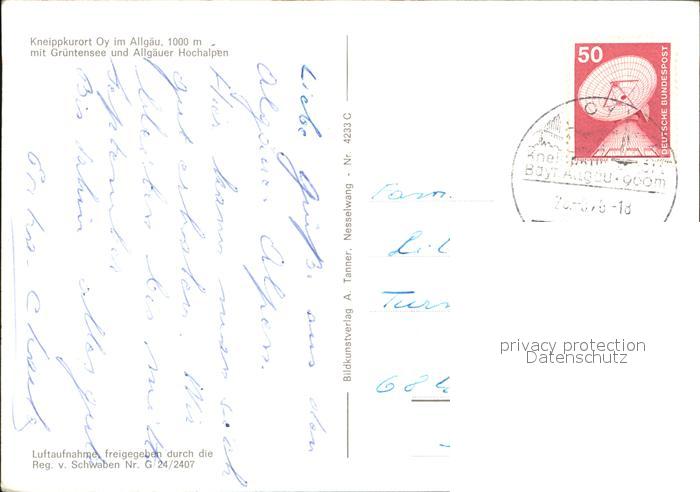 Kneippkurort Oy im Allgäu, 1000 m
mit Grüntensee und Allgäuer Hochalpen
Liebe Grüße aus den
Allgäuer Alpen.
Hier kann man sich
gut erholen. Wir
bleiben bis mitte
September
Bis dahin alles gute
Luftaufnahme, freigegeben durch die
Reg. v. Schwaben Nr. G 24/2407
Bildkunstverlag A. Tanner, Nesselwang - Nr. 4233 C
50
DEUTSCHE BUNDESPOST
Bayr. Allgäu · 960m
-18
Fam.
684
privacy protection
Datenschutz